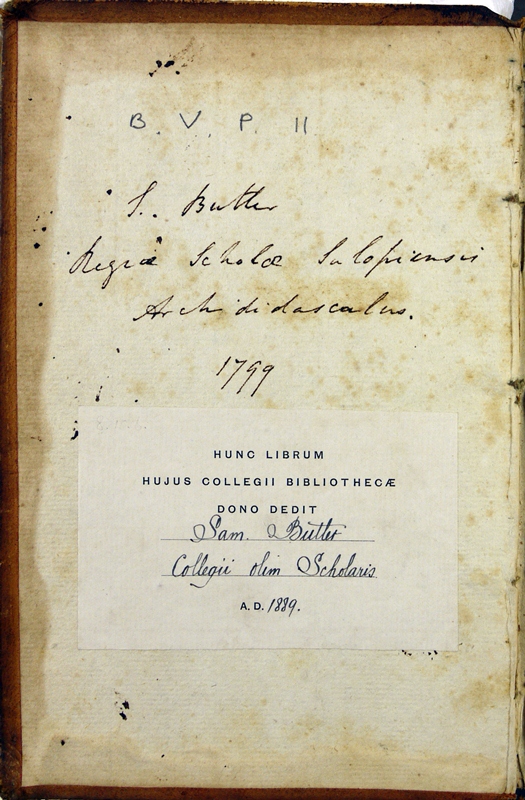 B. V. P. 11
S. Butler
Regiæ Scholæ Salopiensis
Archididascalus.
1799
HUNC LIBRUM
HUJUS COLLEGII BIBLIOTHECÆ
DONO DEDIT
Sam. Butler
Collegii olim Scholaris
A.D. 1889.